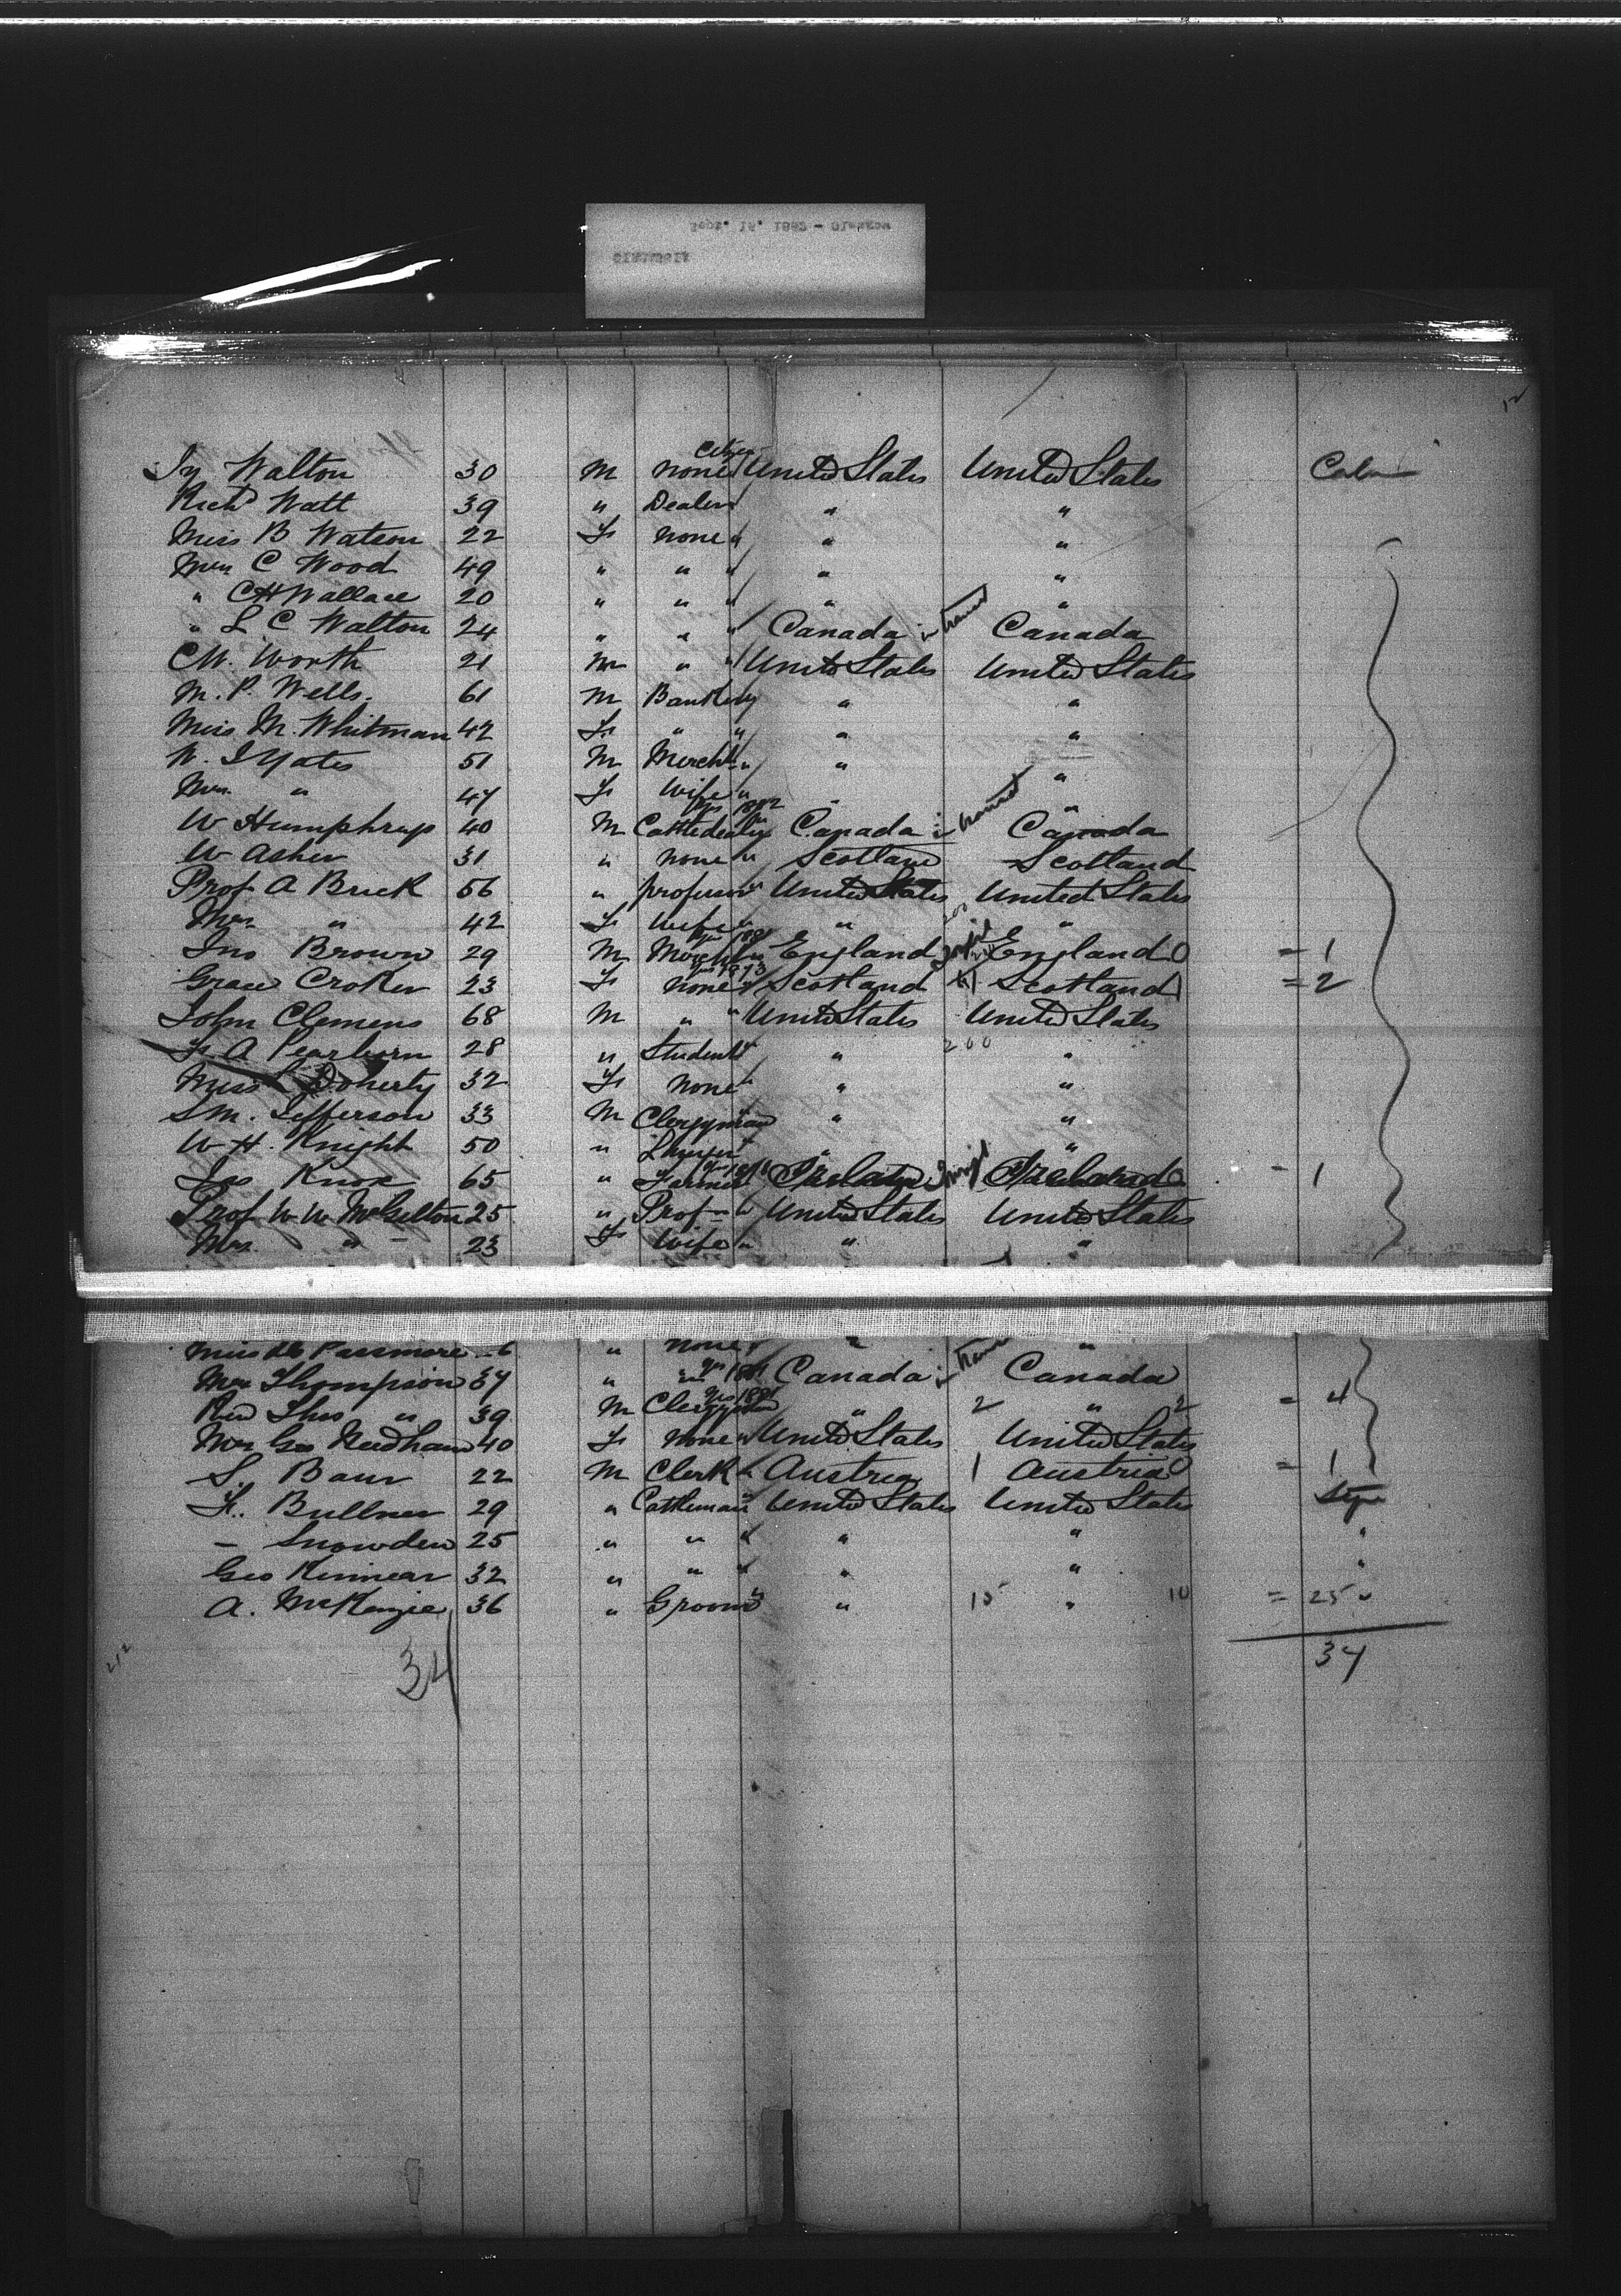 Sept. 15. 1892 - Glasgow
Citizen
Jy Walton 30 M none " United States United States Cabin
Richd Watt 39 " Dealer " " "
Miss B Watson 22 F none " " "
Mrs C Wood 49 " " " " "
" C H Wallace 20 " " " " "
" L C Walton 24 " " " Canada in transit Canada
C W. Worth 21 M " " United States United States
M. P. Wells. 61 M Banker " " "
Miss M. Whitman 42 F " " " "
W. J Yates 51 M Mercht " " "
Mrs. " 47 F Wife " " "
W Humphrey 40 M Cattledealer Canada in transit Canada
W Asher 31 " none " Scotland Scotland
Prof A Buck 56 " professor " United States United States
Mrs. " 42 F Wife " " "
Jno Brown 29 M Mercht England England = 1
Grace Croker 23 F none 1873 Scotland Scotland = 2
John Clemens 68 M " " United States United States
F. A Pearborn 28 " Student " " 200 "
Miss Doherty 32 F none " " "
S M. Jefferson 33 M Clergyman " "
W H. Knight 50 " Lawyer " "
Jas Knox 65 " Farmer Ireland Ireland - 1
Prof W W McGilton 25 " Prof " United States United States
Mrs. " 23 F Wife " " "
Miss Passmore 6 " none " " "
Mrs Thompson 37 " " yrs 1881 Canada in transit Canada
Rev Thos " 39 M Clergyman yrs 1881 " 2 " 2 = 4
Mrs Geo Needham 40 F none " United States United States
S. Baur 22 M Clerk " Austria 1 Austria 0 = 1
F. Bullner 29 " Cattleman " United States United States Stge
- Snowden 25 " " " " " "
Geo Kinnear 32 " " " " " "
A. McKenzie 36 " Groom " " 15 " 10 = 25 "
34
34
212